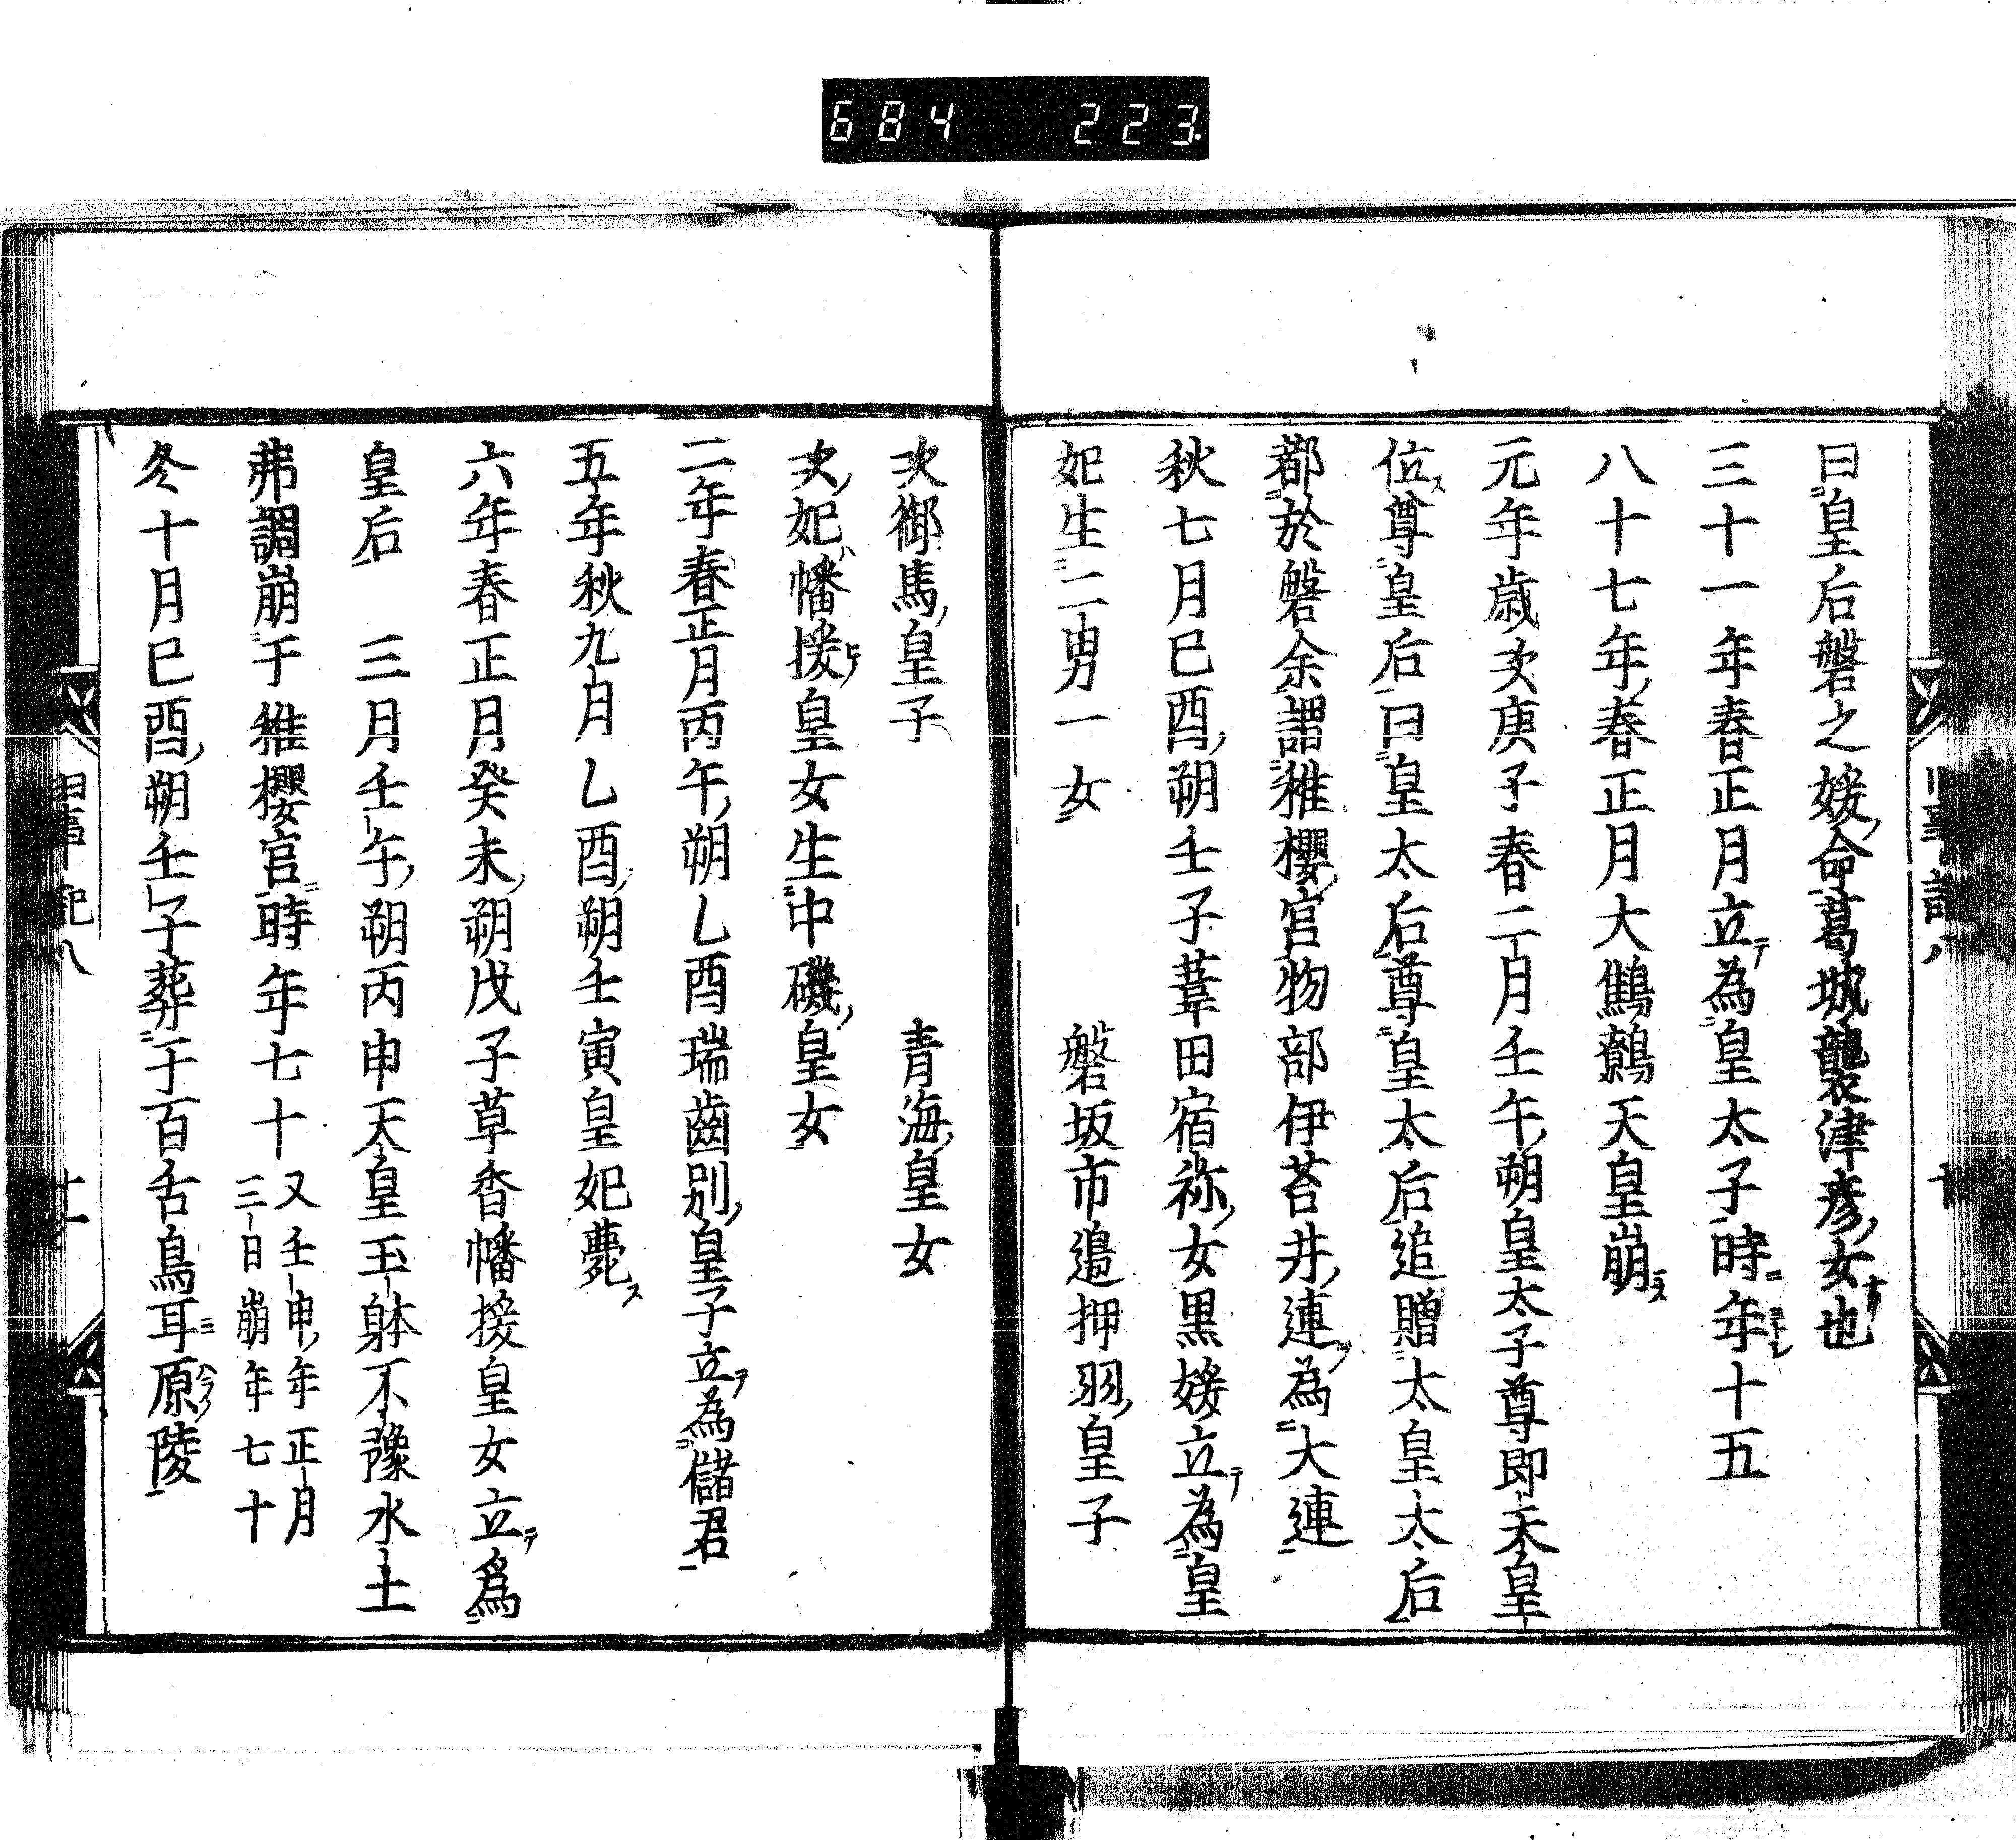 684 223
曰皇后磐之媛命葛城襲津彦女也
三十一年春正月立為皇太子時年十五
八十七年春正月大鷦鷯天皇崩
元年歳次庚子春二月壬午朔皇太子尊即天皇
位尊皇后曰皇太后尊皇太后追贈太皇太后
都於磐余謂稚櫻宮物部伊莒弗連為大連
秋七月巳酉朔壬子葦田宿祢女黒媛立為皇
妃生二男一女 磐坂市邉押羽皇子
次御馬皇子 青海皇女
次妃幡援皇女生中磯皇女
二年春正月丙午朔乙酉瑞齒別皇子立為儲君
五年秋九月乙酉朔壬寅皇妃薨
六年春正月癸未朔戊子草香幡援皇女立爲
皇后 三月壬午朔丙申天皇玉躰不豫水土
弗調崩于稚櫻宮時年七十 又壬申年正月三日崩年七十
冬十月巳酉朔壬子葬于百舌鳥耳原陵